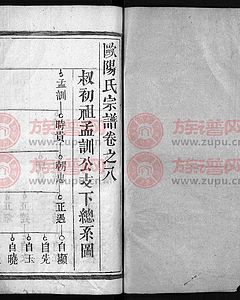 歐陽氏宗譜卷之八
叔初祖孟訓公支下總系圖
孟訓
時貴
朝忠
正選
自顯
自先
自玉
自曉
族譜网
www.zupu.cn